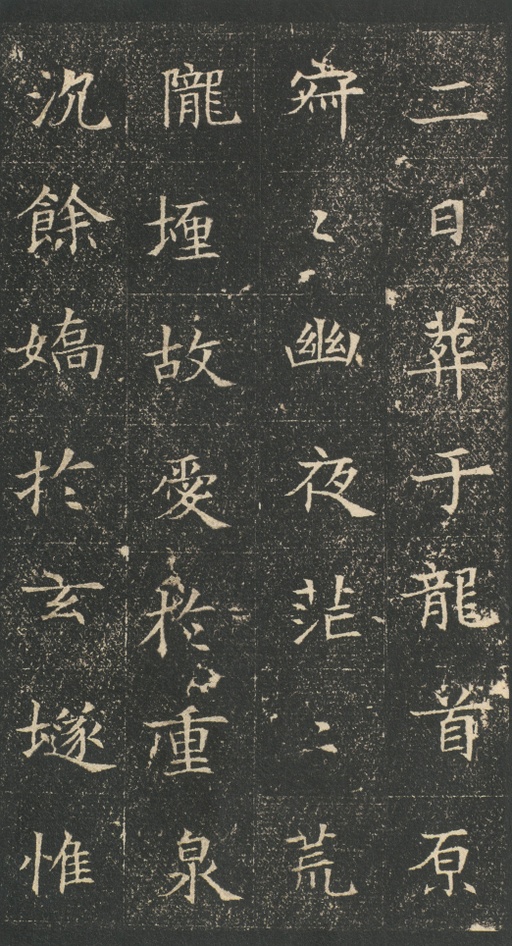 二日葬于龍首原
穸〻幽夜茫〻荒
隴堙故愛於重泉
沉餘嬌於玄墜惟